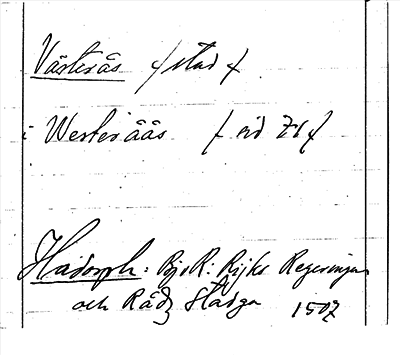 Västerås /stad/
i Westeråås / sid 71/
Hadorph: BjäR: Rijks Regeringen
och Rådz Stadga 1507